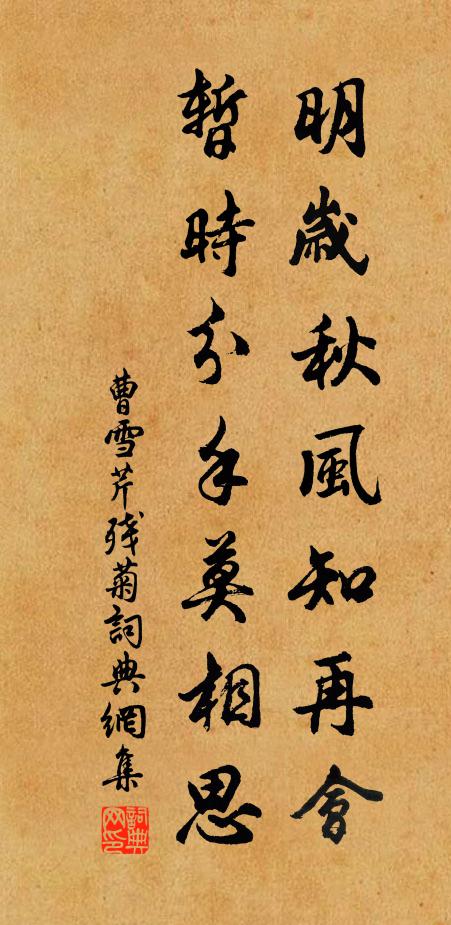 明歲秋風知再會
暫時分手莫相思
曹雪芹殘菊詞典網集
詞典网印